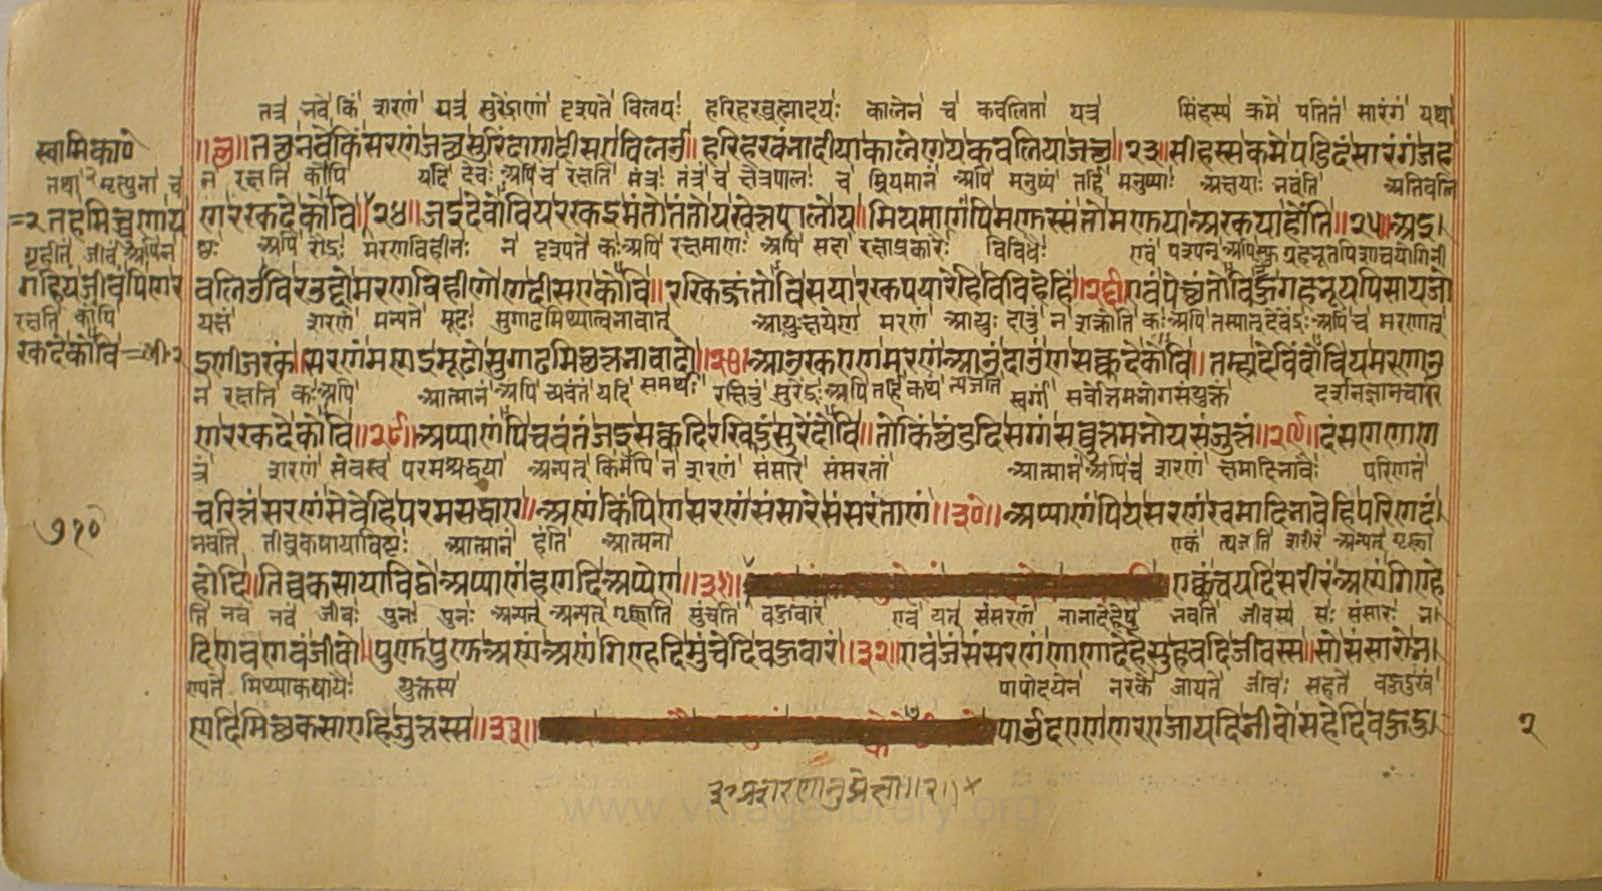 तत्र नवे किं शरणं यत्र सुरेंद्राणां दृश्यते विलयः हरिहरब्रह्मादयः कालेन च कवलिता यत्र सिंहस्य क्रमे पतितं सारंगं यथा
स्वामिकार्ति
॥छ॥ तच्छ नवे किं सरणं जच्छ सुरिंदाण दीसए विलउ॥ हरिहरबंनादीया कालेण य कवलिया जच्छ॥२३॥ सीहस्स कमे पडिदं सारंगं जह
तथा मृत्युना च न रक्षति कोपि यदि देवः अपि च रक्षति मंत्रः तंत्रं च क्षेत्रपालः च म्रियमानं अपि मनुष्यं तर्हि मनुष्याः अक्षयाः नवंति अतिबलि
=२ तह मिच्चुणा य ण रस्कदे को वि॥२४॥ जइ देवो वि य रस्कइ मंतो तंतो य खेत्तपालो य॥ मियमाणं पि मणुस्सं तो मणुया अस्कया होंति॥२५॥ अइ
गृहीतं जीवं अपि न ष्ठः अपि रौद्रः मरणविहीनः न दृश्यते कः अपि रक्षमाणः अपि सदा रक्षाप्रकारैः विविधैः एवं पश्यन् अपि
गहियं जीवं पि ण र बलिउ वि रउद्दो मरणविहीणो ण दीसए को वि॥ रस्किज्जंतो वि सया रस्कपयारेहि विविहेहिं॥२६॥ एवं पेच्छंतो वि हु गहनूयपिसायजो
रक्षति कोपि यक्षं शरणं मन्यते मूढः सुगाढमिथ्यात्वनावात् आयुःक्षयेण मरणं आयुः दातुं न शक्नोति कः अपि तस्मात् देवेंद्रः अपि च मरणात्
स्कदे को वि=॥२ इणी जस्कं॥ सरणं मणइ मूढो सुगाढमिच्छत्तनावादो॥२७॥ आउस्कएण मरणं आउं दाउं ण सक्कदे को वि॥ तम्हा देविंदो वि य मरणाउ
न रक्षति कः अपि आत्मानं अपि च्यवंतं यदि समर्थः रक्षितुं सुरेंद्रः अपि तर्हि कथं त्यजति स्वर्गं सर्वोत्तमनोगसंयुक्तं दर्शनज्ञानचारि
ण रस्कदे को वि॥२८॥ अप्पाणं पि चवंतं जइ सक्कदि रस्किदुं सुरेंदो वि॥ तो किं छंडदि सग्गं सव्वुत्तमनोयसंजुत्तं॥२९॥ दंसणणाण
त्रं शरणं सेवस्व परमश्रद्धया अन्यत् किमपि न शरणं संसारे संसरतां आत्मानं अपि च शरणं क्षमादिनावैः परिणतं
चरित्तं सरणं सेवेहि परमसद्धाए॥ अणं किं पि ण सरणं संसारे संसरंताणं॥३०॥ अप्पाणं पि य सरणं खमादिनावेहि परिणदं
७१०
नवति तीव्रकषायाविष्टः आत्मानं हंति आत्मना एकं त्यजति शरीरं अन्यत् गृह्णा
होदि॥ तिव्वकसायाविट्ठो अप्पाणं हणदि अप्पेण॥३१॥ एक्कं चयदि सरीरं अणं गिण्हे
ति नवं नवं जीवः पुनः पुनः अन्यत् अन्यत् गृह्णाति मुंचति बहुवारं एवं यत् संसरणं नानादेहेषु नवति जीवस्य सः संसारः न
दि णवणवं जीवो॥ पुणु पुणु अणं अणं गिण्हदि मुंचेदि बहुवारं॥३२॥ एवं जं संसरणं णाणादेहेसु हवदि जीवस्स॥ सो संसारो न
ण्यते मिथ्याकषायैः युक्तस्य पापोदयेन नरके जायते जीवः सहते बहुदुःखं
णदि मिच्छकसाएहि जुत्तस्स॥३३॥ पाउदएण णरए जायदि जीवो सहेदि बहुदु
२
अशरणानुप्रेक्षा॥२॥
www.vitragelibrary.org